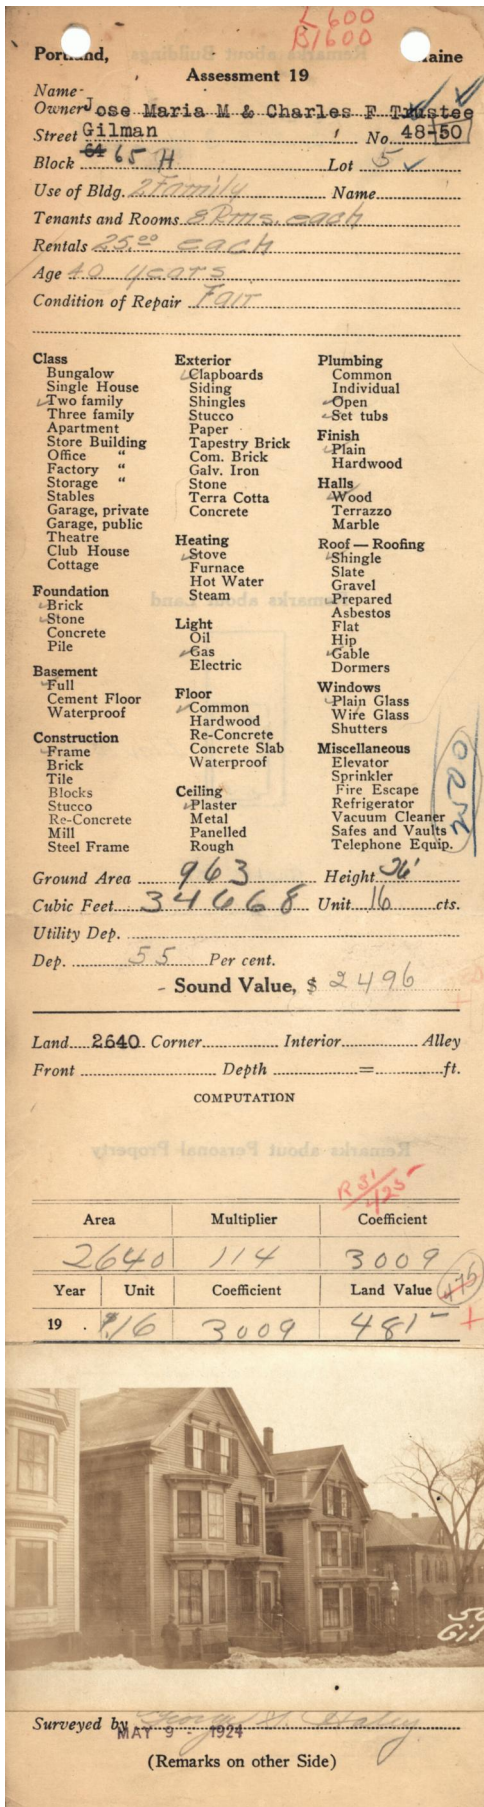 L 600
B 1600
Portland, Maine
Assessment 19
Name
Owner Jose Maria M & Charles F Trustee
Street Gilman No. 48-50
Block 64 65 H Lot 5
Use of Bldg. 2 Family Name
Tenants and Rooms 8 Rms. each
Rentals 25.00 each
Age 40 years
Condition of Repair Fair
Class
Bungalow
Single House
Two family
Three family
Apartment
Store Building
Office "
Factory "
Storage "
Stables
Garage, private
Garage, public
Theatre
Club House
Cottage
Foundation
Brick
Stone
Concrete
Pile
Basement
Full
Cement Floor
Waterproof
Construction
Frame
Brick
Tile
Blocks
Stucco
Re-Concrete
Mill
Steel Frame
Exterior
Clapboards
Siding
Shingles
Stucco
Paper
Tapestry Brick
Com. Brick
Galv. Iron
Stone
Terra Cotta
Concrete
Heating
Stove
Furnace
Hot Water
Steam
Light
Oil
Gas
Electric
Floor
Common
Hardwood
Re-Concrete
Concrete Slab
Waterproof
Ceiling
Plaster
Metal
Panelled
Rough
Plumbing
Common
Individual
Open
Set tubs
Finish
Plain
Hardwood
Halls
Wood
Terrazzo
Marble
Roof — Roofing
Shingle
Slate
Gravel
Prepared
Asbestos
Flat
Hip
Gable
Dormers
Windows
Plain Glass
Wire Glass
Shutters
Miscellaneous
Elevator
Sprinkler
Fire Escape
Refrigerator
Vacuum Cleaner
Safes and Vaults
Telephone Equip.
Ground Area 963 Height 36'
Cubic Feet 34668 Unit 16 cts.
Utility Dep.
Dep. 55 Per cent.
Sound Value, $ 2496
Land 2640 Corner Interior Alley
Front Depth = ft.
COMPUTATION
R 31/425
Area Multiplier Coefficient
2640 114 3009
Year Unit Coefficient Land Value 475
19 . .16 3009 481
50
Gil
Surveyed by
MAY 9 - 1924
(Remarks on other Side)